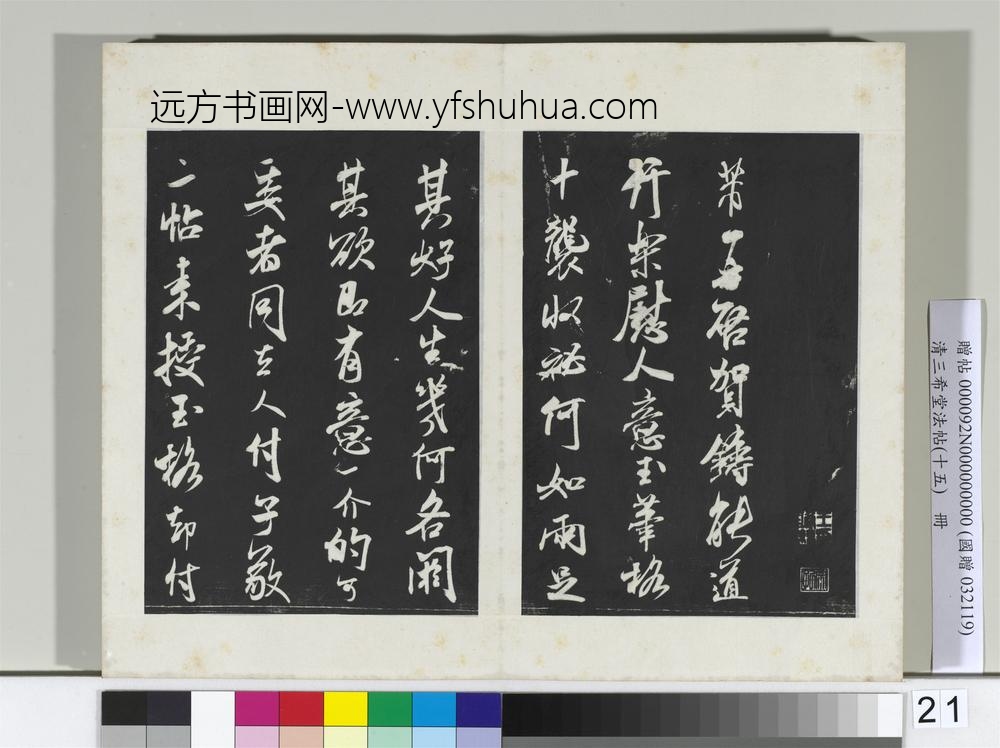 远方书画网-www.yfshuhua.com
芾頓首啓賀鑄能道
行樂慰人意玉筆格
十襲收秘何如兩足
其好人生幾何各闕
其欲即有意一介的可
委者同去人付子敬
二帖來授玉格却付
贈帖 000092N000000000 (國贈 032119)
清三希堂法帖(十五) 冊
21